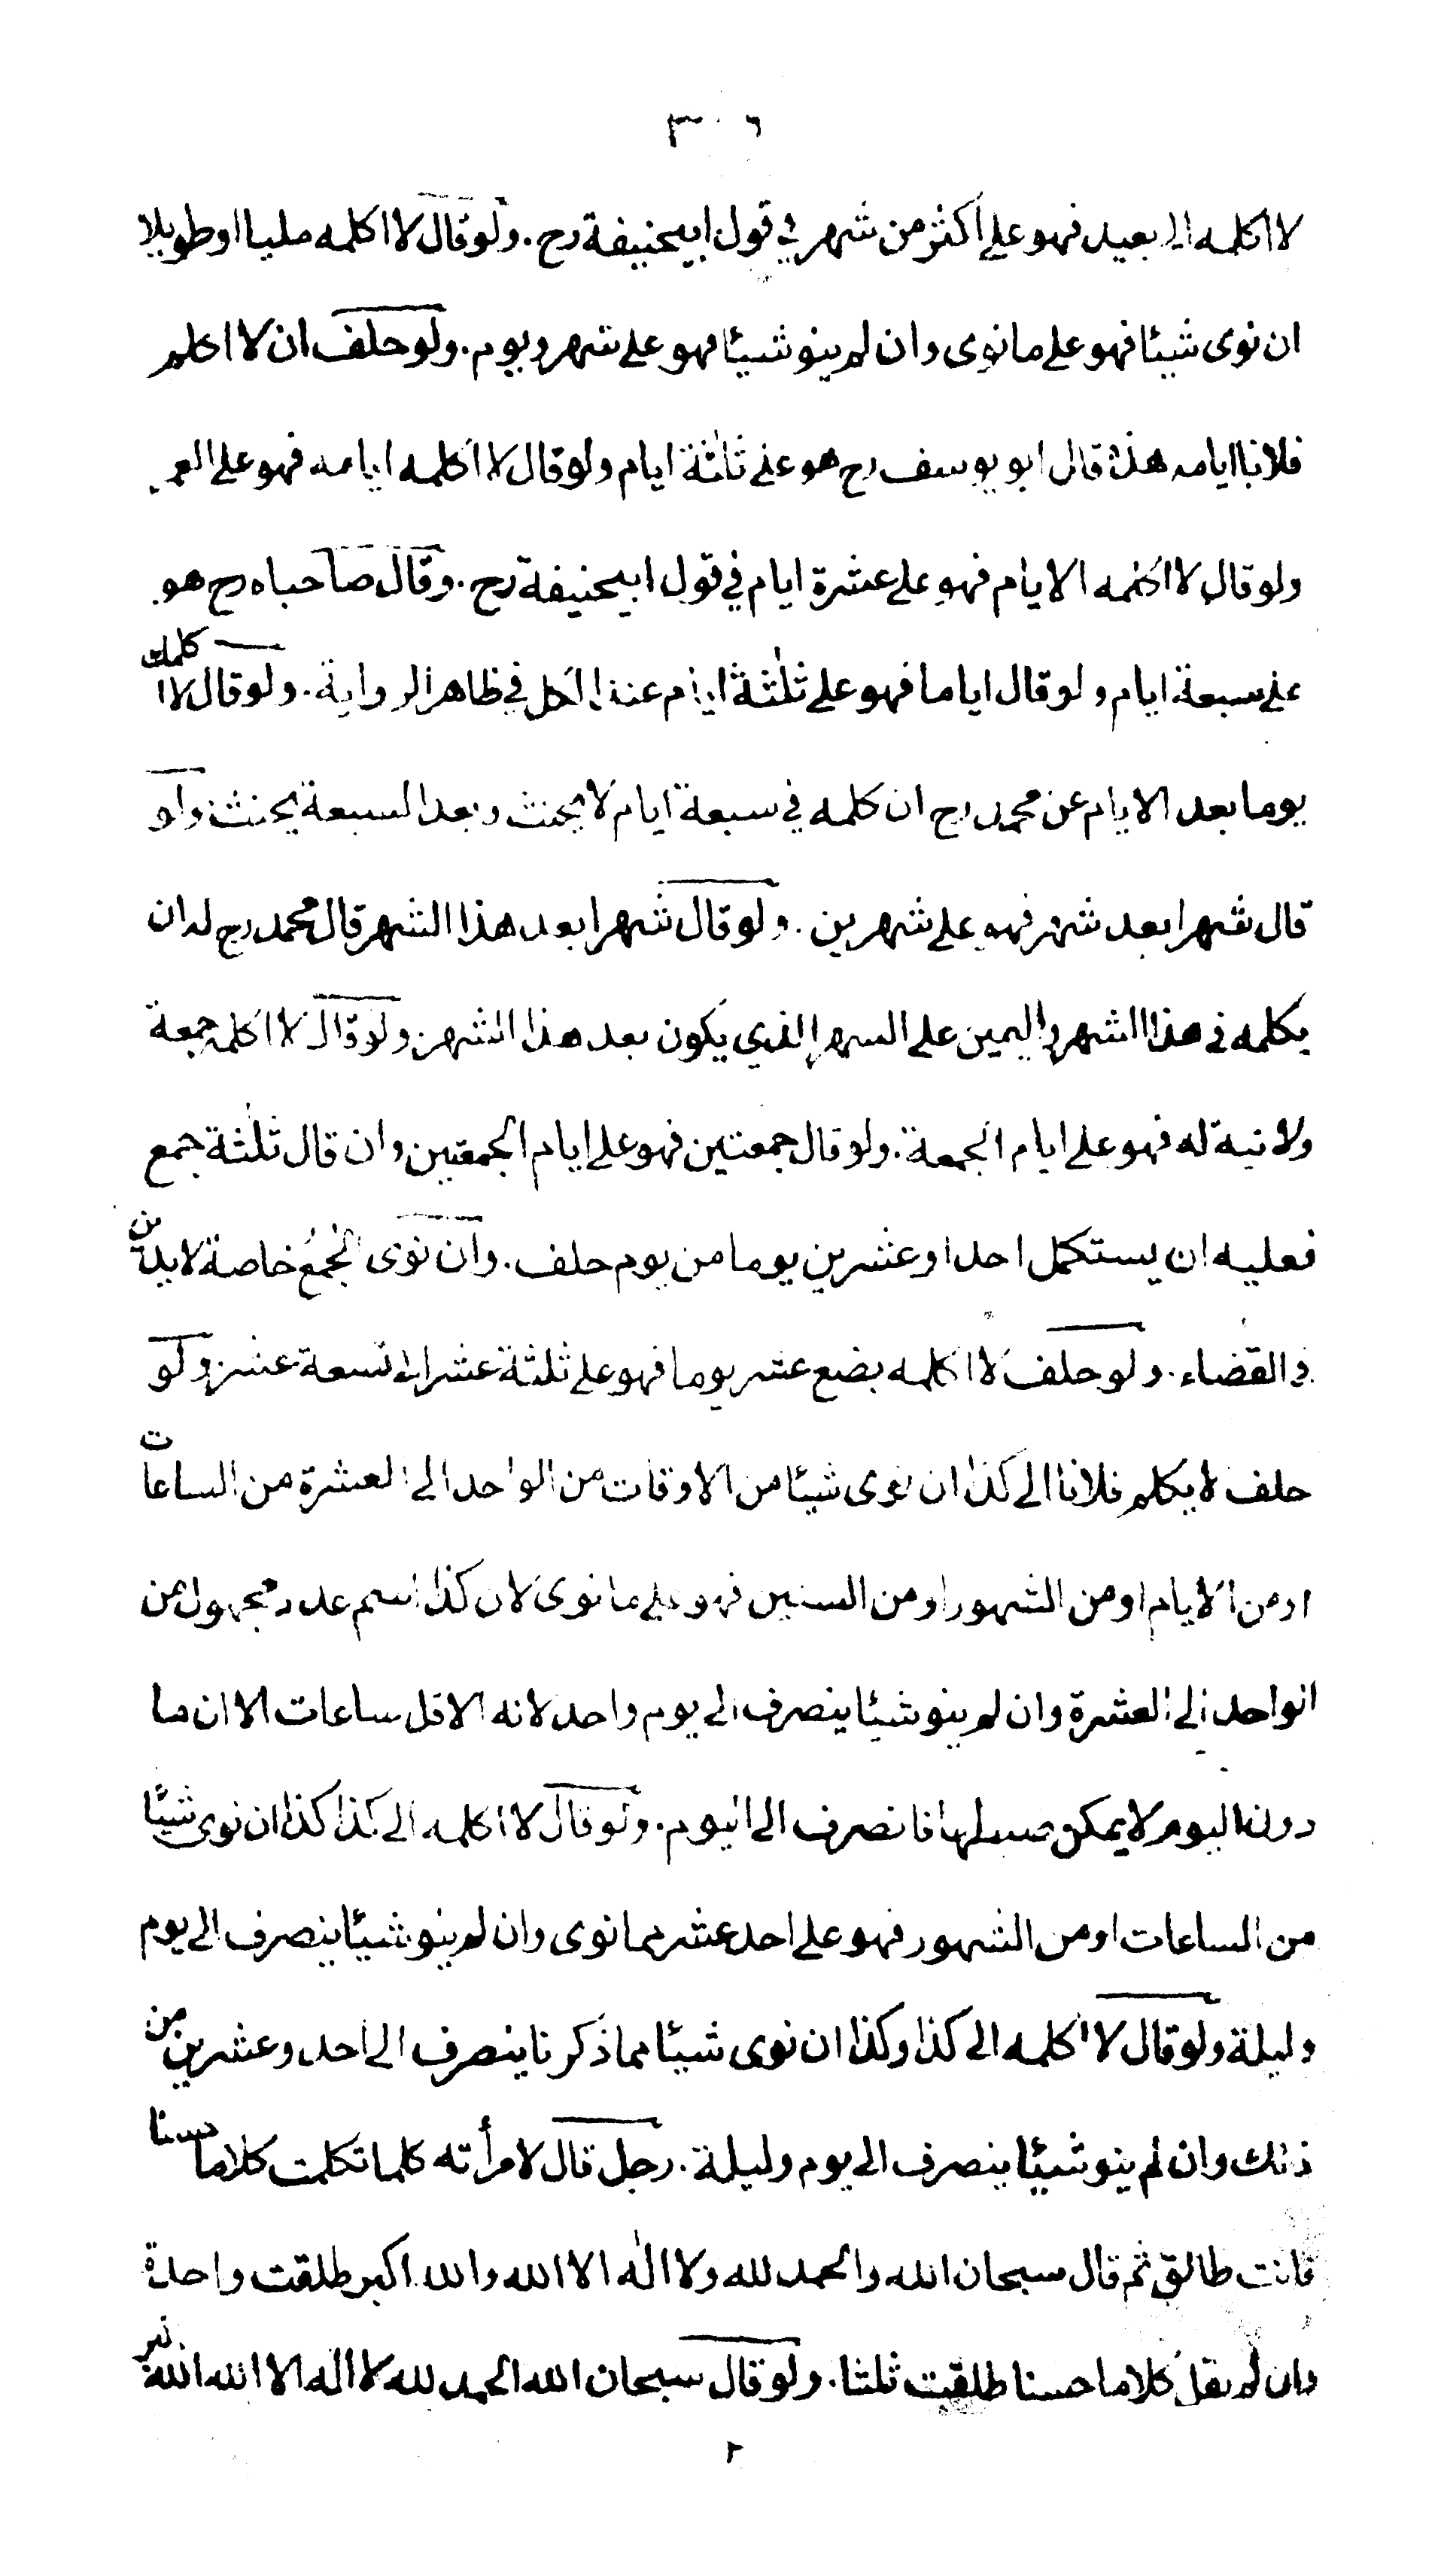 ٣٠٦
لا اكلمه الى بعيد فهو على اكثر من شهر في قول ابيحنيفة رح . ولو قال لا اكلمه مليا او طويلا
ان نوى شيئا فهو على ما نوى وان لم ينو شيئا فهو على شهر ويوم . ولو حلف ان لا اكلم
فلانا ايامه هذه قال ابو يوسف رح هو على ثلثة ايام ولو قال لا اكلمه ايامه فهو على العمر
ولو قال لا اكلمه الايام فهو على عشرة ايام في قول ابيحنيفة رح . وقال صاحباه رح هو
على سبعة ايام ولو قال اياما فهو على ثلثة ايام عند الكل في ظاهر الرواية . ولو قال لا اكلمك
يوما بعد الايام عن محمد رح ان كلمه في سبعة ايام لا يحنث وبعد السبعة يحنث ولو
قال شهرا بعد شهر فهو على شهرين . ولو قال شهرا بعد هذا الشهر قال محمد رح له ان
يكلمه في هذا الشهر واليمين على الشهر الذي يكون بعد هذا الشهر . ولو قال لا اكلمه جمعة
ولا نية له فهو على ايام الجمعة . ولو قال جمعتين فهو على ايام الجمعتين وان قال ثلثة جمع
فعليه ان يستكمل احدا وعشرين يوما من يوم حلف . وان نوى الجمع خاصة لا يدين
في القضاء . ولو حلف لا اكلمه بضع عشر يوما فهو على ثلثة عشر الى تسعة عشر . ولو
حلف لا يكلم فلانا الى كذا ان نوى شيئا من الاوقات من الواحد الى العشرة من الساعات
او من الايام او من الشهور او من السنين فهو على ما نوى لان كذا اسم عدد مجهول من
الواحد الى العشرة وان لم ينو شيئا ينصرف الى يوم واحد لانه الاقل ساعات الا ان ما
دون اليوم لا يمكن فانصرف الى اليوم . ولو قال لا اكلمه الى كذا كذا ان نوى شيئا
من الساعات او من الشهور فهو على احد عشر مما نوى وان لم ينو شيئا ينصرف الى يوم
وليلة ولو قال لا اكلمه الى كذا وكذا ان نوى شيئا مما ذكرنا ينصرف الى احد وعشرين من
ذلك وان لم ينو شيئا ينصرف الى يوم وليلة . رجل قال لامرأته كلما تكلمت كلاما حسنا
فانت طالق ثم قال سبحان الله والحمد لله ولا اله الا الله والله اكبر طلقت واحدة
وان لم يقل كلاما حسنا طلقت ثلثا . ولو قال سبحان الله الحمد لله لا اله الا الله الله